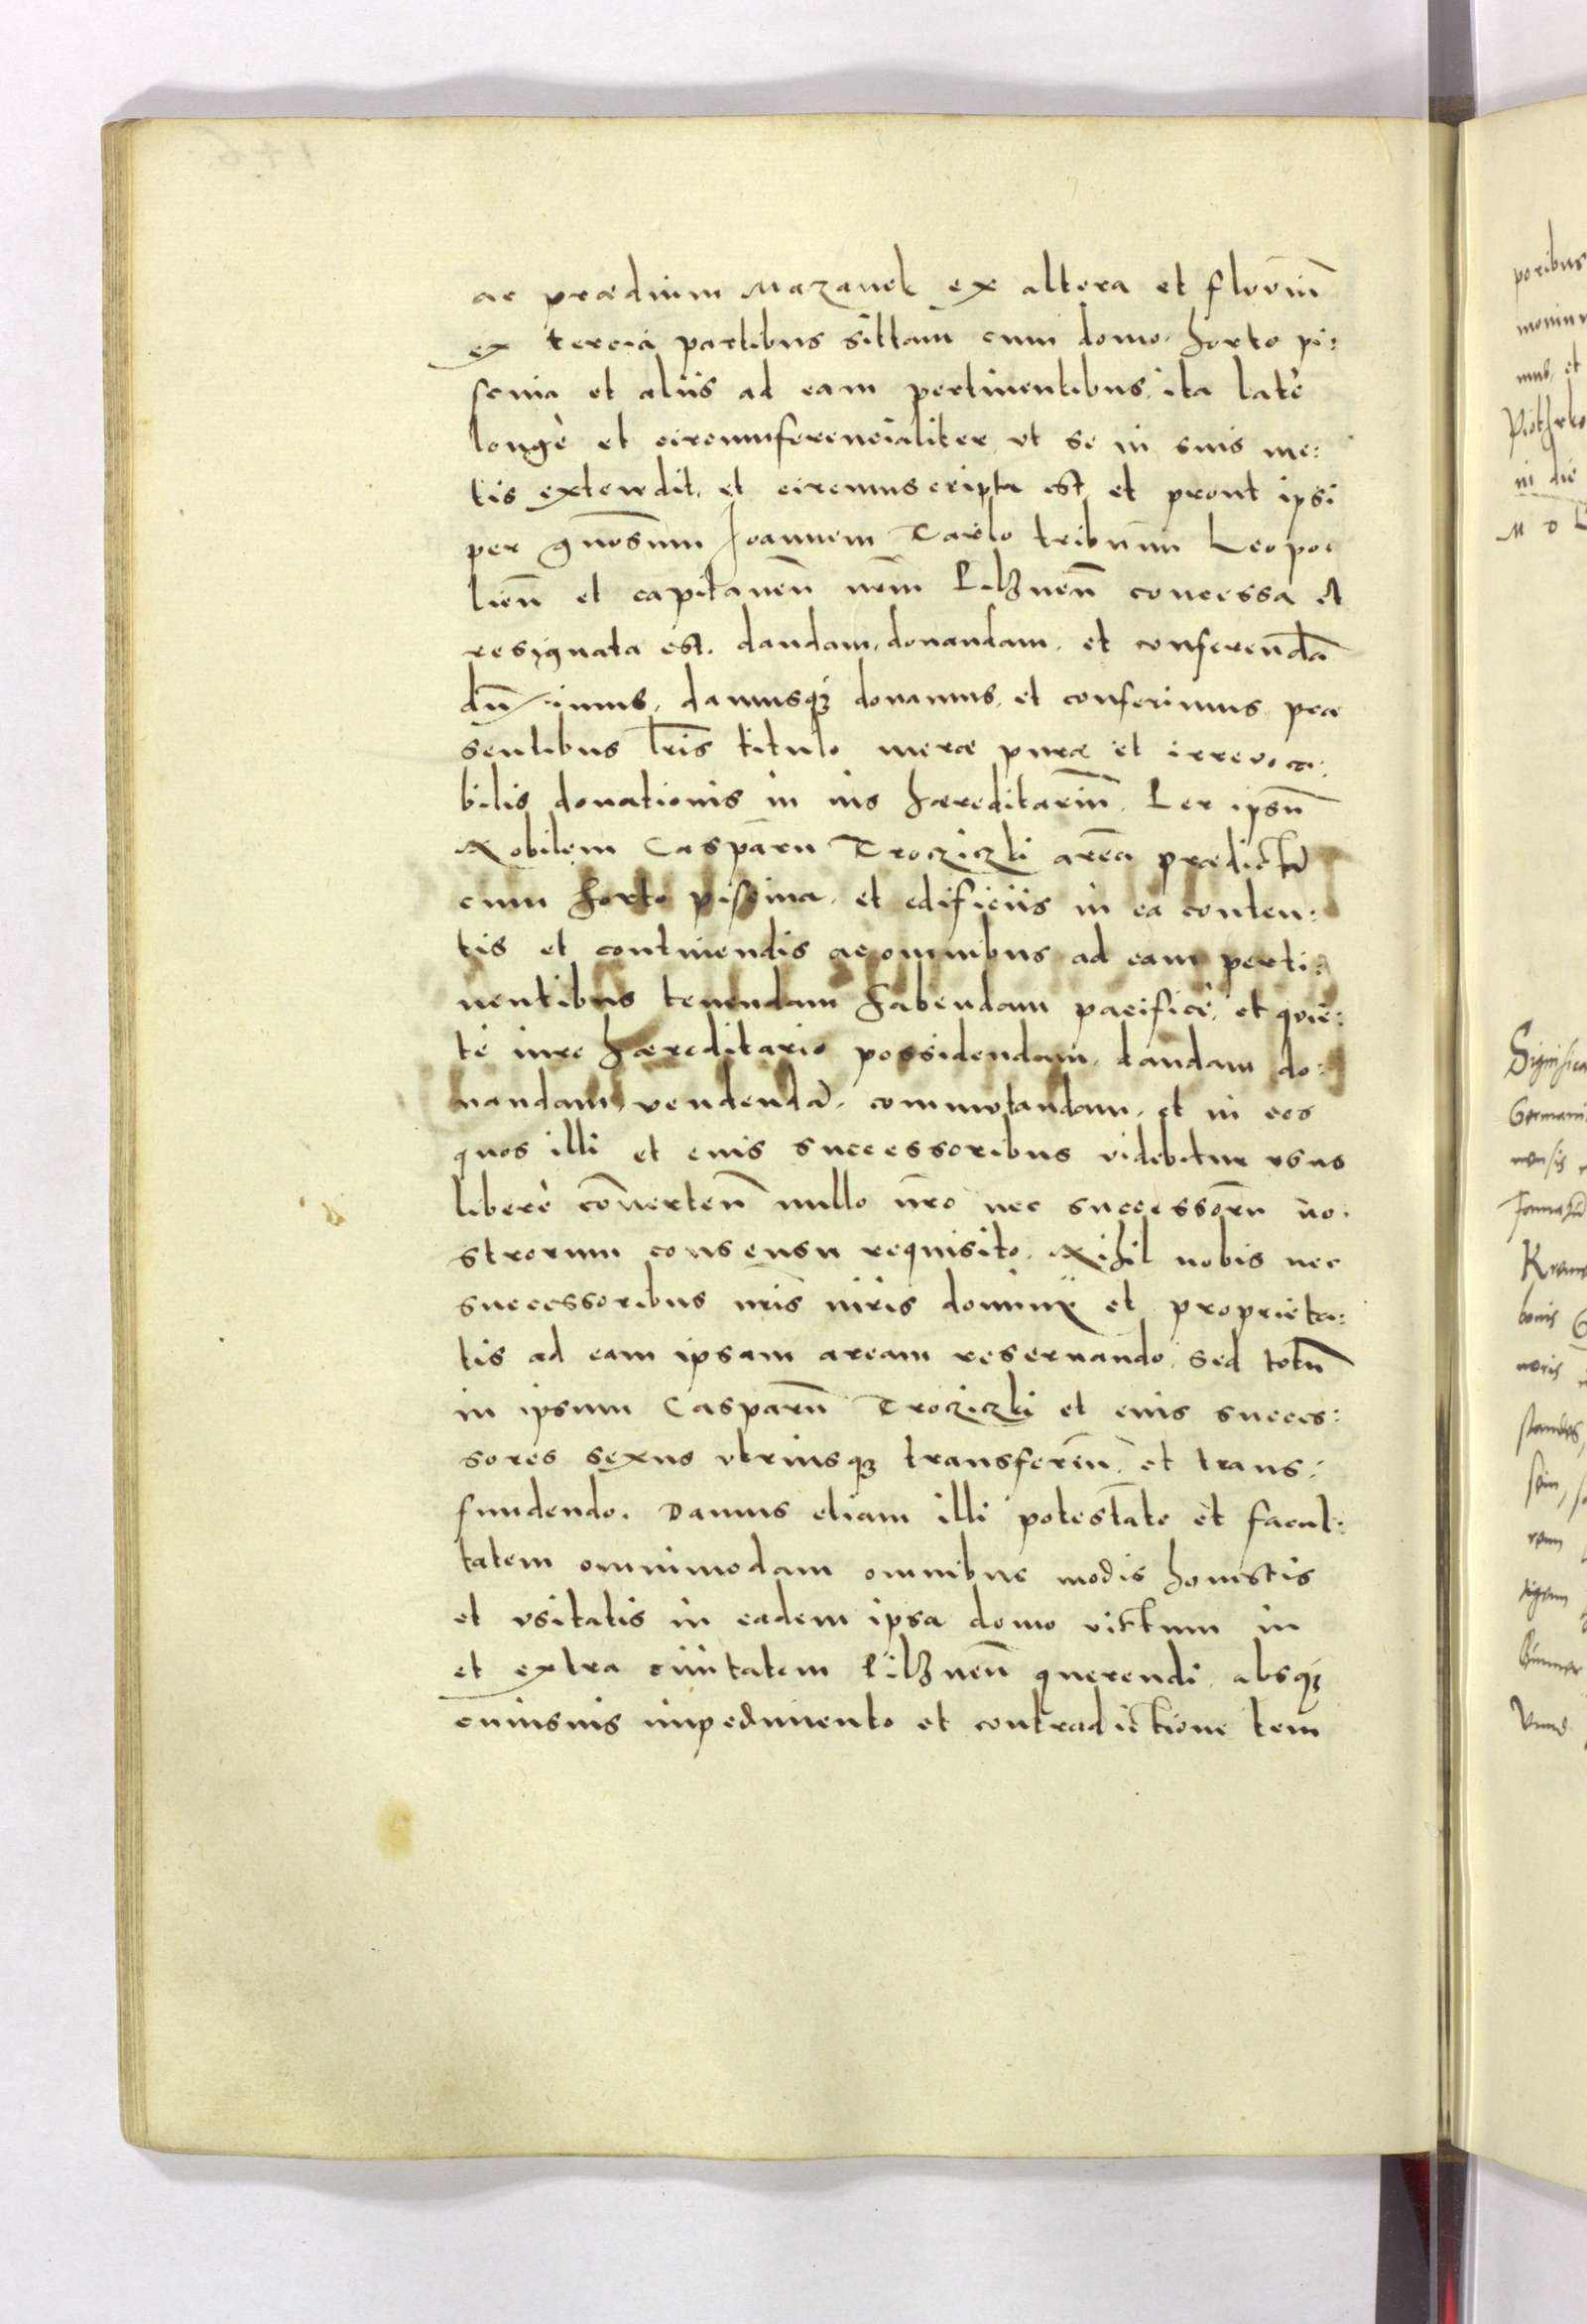 ac prædium Mazanek ex altera et fluviū
ex tercia partibus sittam cum domo, horto pi:
scina et aliis ad eam pertinentibus, ita latè
longè et circumferencialiter, ut se in suis me:
tis extendit, et circumscripta est, et prout ipsi
per gnosum Joannem Tarlo tribunum Leopo:
lien̄ et capitaneū nrm̄ Pilznen̄ concessa et
resignata est. dandam, donandam, et conferendā
duximus, damusq; donamus, et conferimus præ
sentibus lrīs titulo meræ puræ et irrevoca:
bilis donationis in ius hæreditariū. Per ipsū
Nobilem Casparū Trocziczki areā prædictā
cum horto piscina, et edificiis in ea conten:
tis et continendis ac omnibus ad eam perti:
nentibus tenendam habendam pacificè, et quie:
tè iure hæreditario possidendam, dandam do:
nandam, vendendā, commutandam, et in eos
quos illi et eius successoribus videbitur usus
liberè converten̄ nullo nr̄o nec successorū no:
strorum consensu requisito. Nihil nobis nec
successoribus nr̄is iuris dominii et proprieta:
tis ad eam ipsam aream reservando, sed totū
in ipsum Casparū Trocziczki et eius succes:
sores sexus utriusq; transferen̄. et trans:
fundendo. Damus etiam illi potestatē et facul:
tatem omnimodam omnibus modis honestis
et usitatis in eadem ipsa domo victum in
et extra civitatem Pilznen̄ querendi, absq;
cuiusvis impedimento et contradictione tem